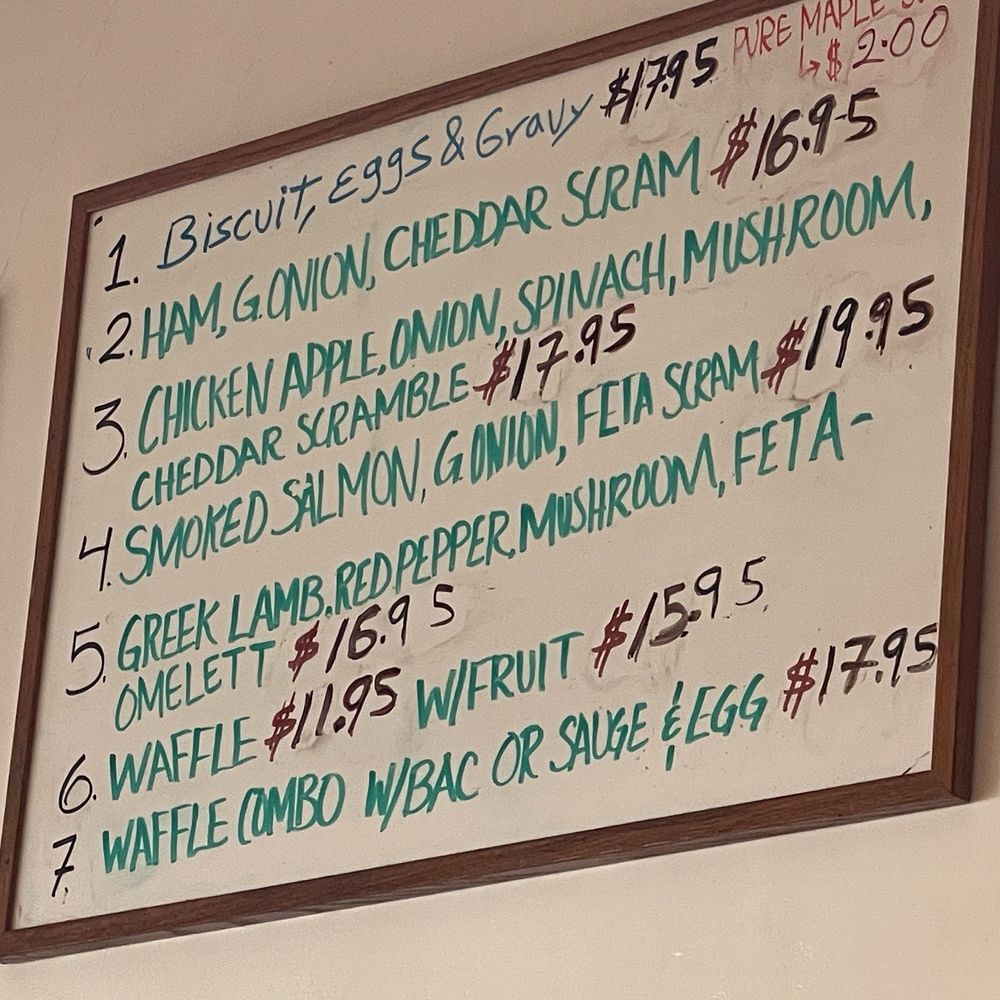 PURE MAPLE
↳ $ 2.00
1. Biscuit, Eggs & Gravy $17.95
2. HAM, G.ONION, CHEDDAR SCRAM $16.95
3. CHICKEN APPLE, ONION, SPINACH, MUSHROOM,
CHEDDAR SCRAMBLE $17.95
4. SMOKED SALMON, G.ONION, FETA SCRAM $19.95
5. GREEK LAMB, RED PEPPER, MUSHROOM, FETA-
OMELETT $16.95
6. WAFFLE $11.95 W/FRUIT $15.95
7. WAFFLE COMBO W/BAC OR SAUGE & EGG $17.95